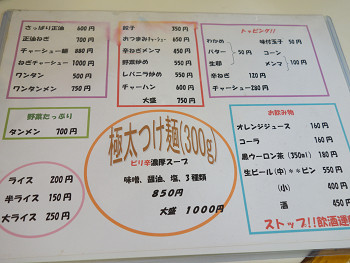 さっぱり正油 600円
正油ねぎ 700円
チャーシュー麺 880円
ねぎチャーシュー 1000円
ワンタン 500円
ワンタンメン 750円
餃子 350円
おつまみチャーシュー 650円
辛ねぎメンマ 450円
野菜炒め 550円
レバニラ炒め 550円
チャーハン 600円
大盛 750円
トッピング!!
わかめ
バター 50円
生卵
味付玉子 50円
コーン
メンマ 100円
辛ねぎ 120円
チャーシュー 280円
野菜たっぷり
タンメン 700円
ライス 200円
半ライス 150円
大ライス 250円
極太つけ麺(300g)
ピリ辛濃厚スープ
味噌、醤油、塩、3種類
850円
大盛 1000円
お飲み物
オレンジジュース 160円
コーラ 160円
黒ウーロン茶(350ml) 180円
生ビール(中)**ビン 550円
(小) 400円
酒 450円
ストップ!!飲酒運